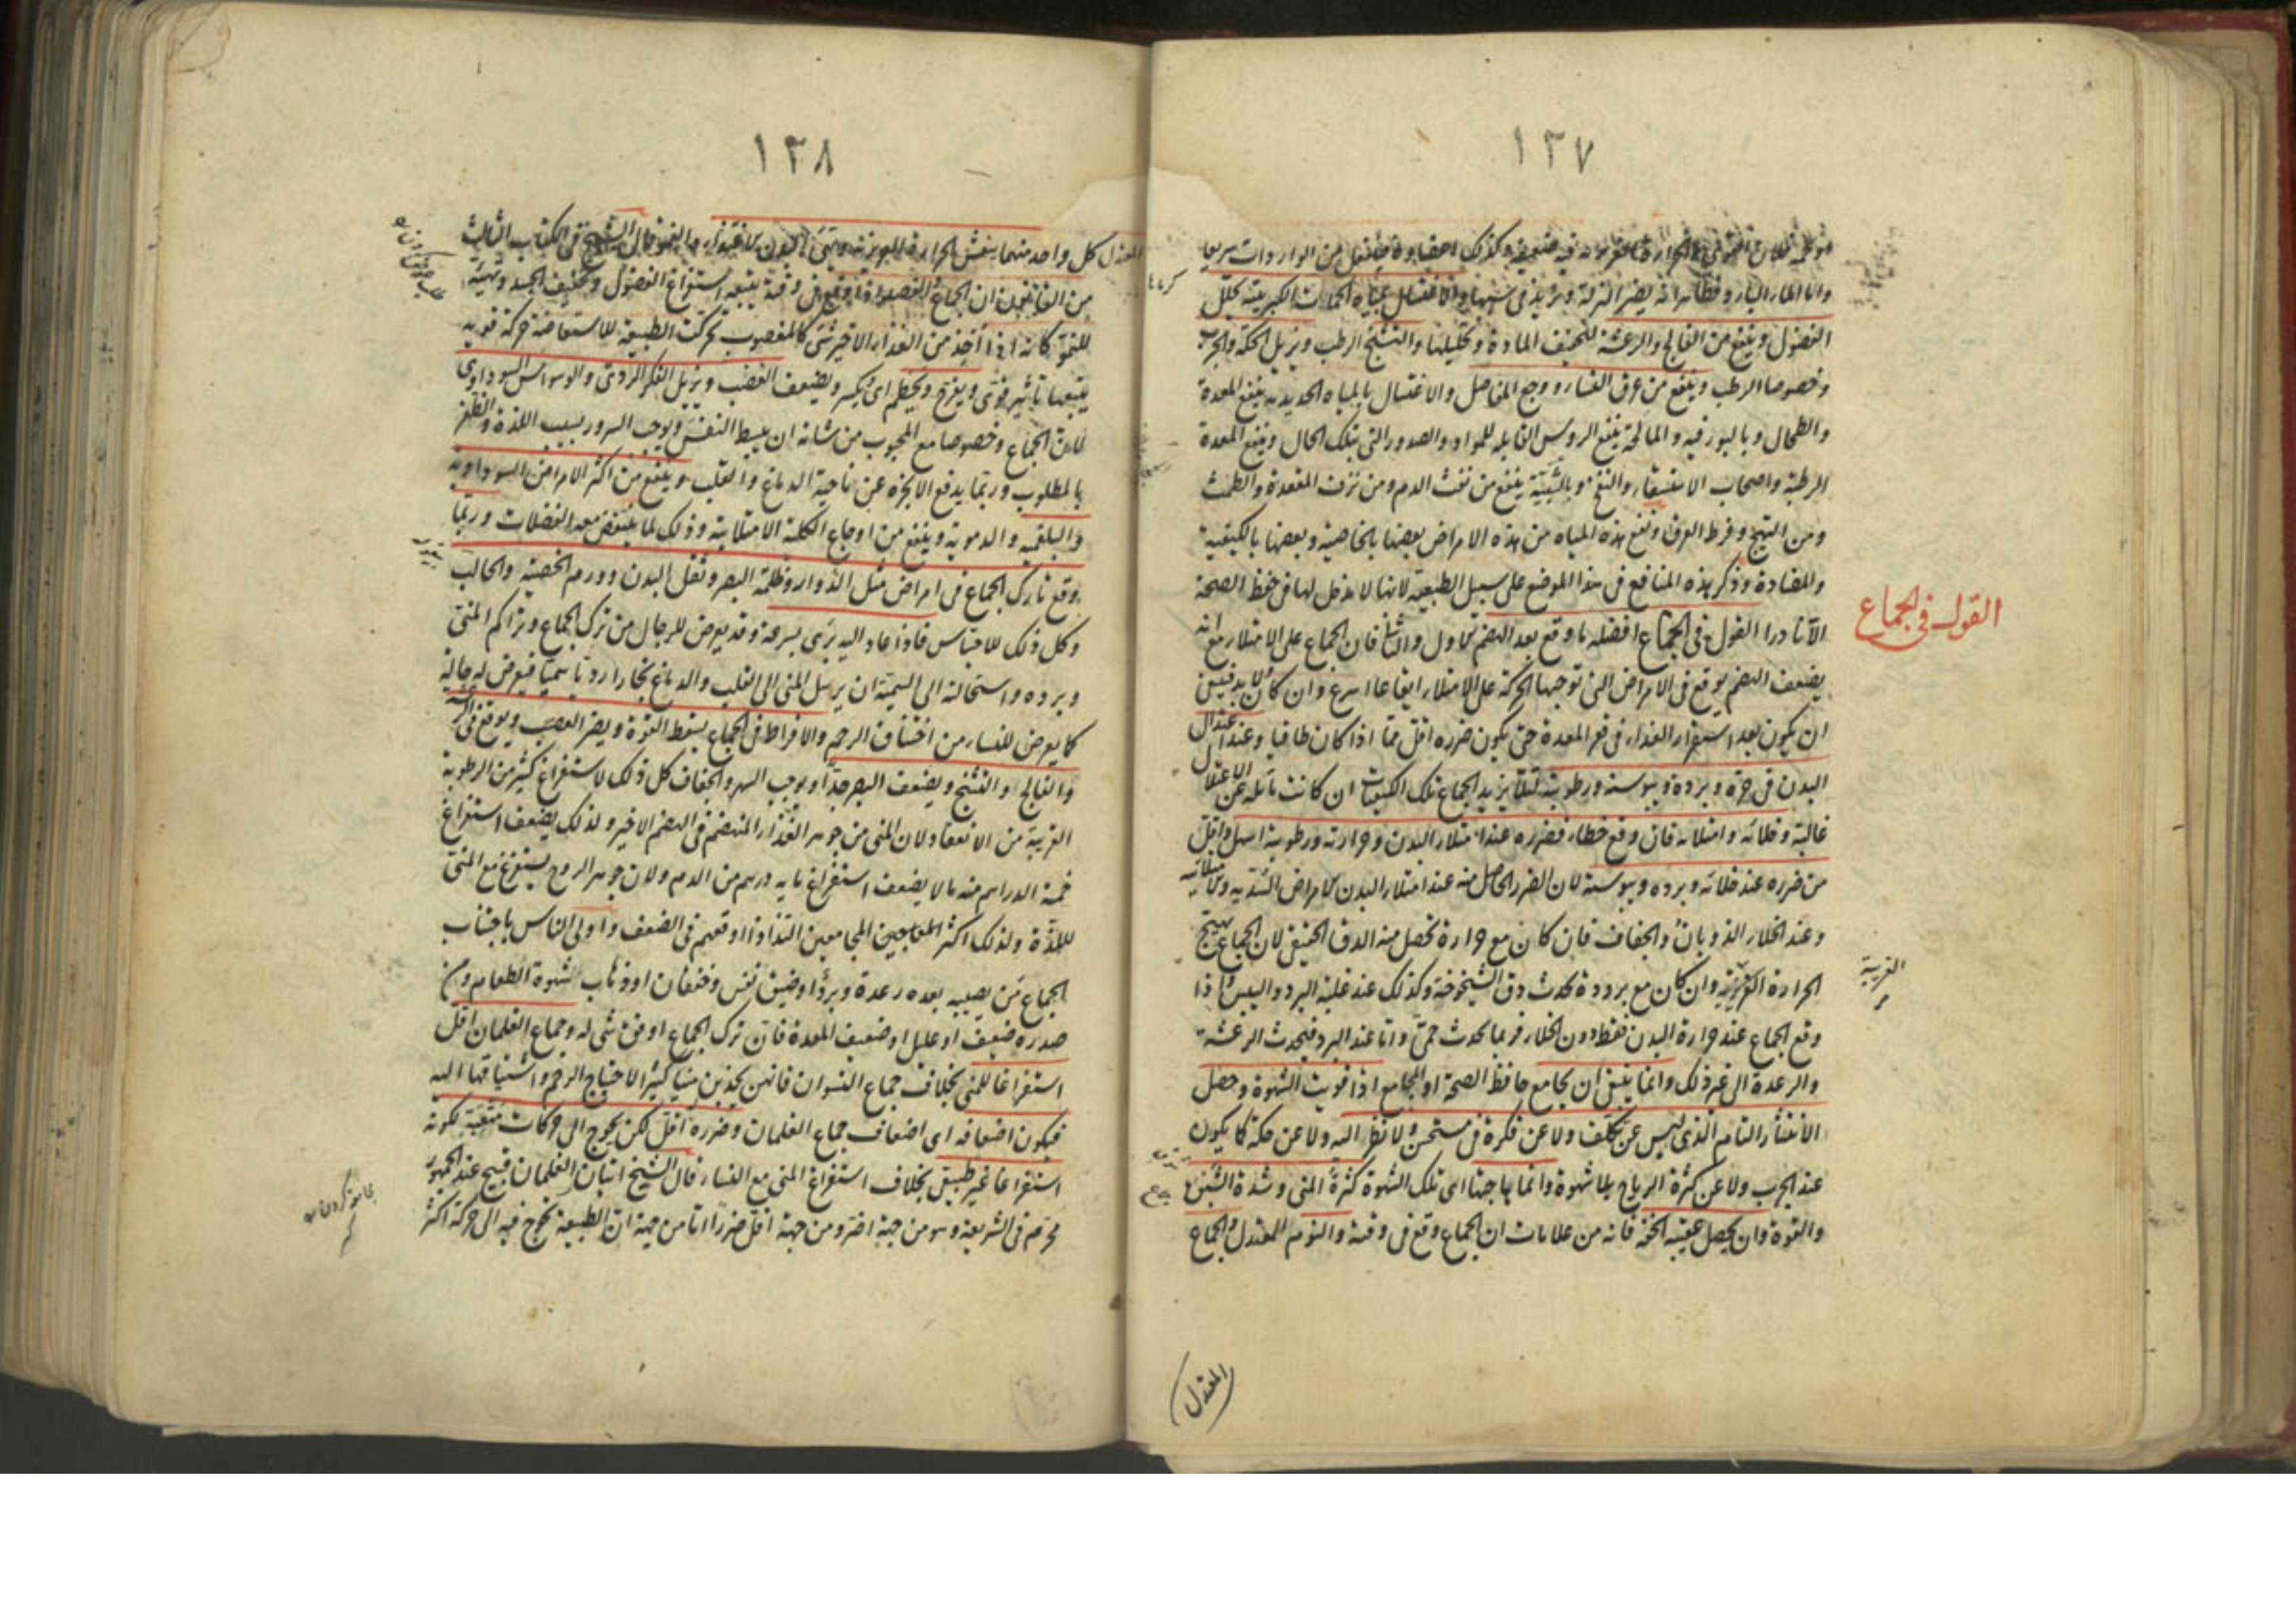 ١٣٧
وكذلك
واما الماء البارد فظاهر انه يضر النزلة ويزيد في سببها والاغتسال بمياه الحمات الكبريتية يحلل
الفضول وينفع من الفالج والرعشة لتجفيف المادة وتحليلها والتشنج الرطب ويزيل الحكة والجرب
وخصوصا الرطب وينفع من عرق النساء ووجع المفاصل والاغتسال بالمياه الحديدية ينفع المعدة
والطحال وبالبورقية والمالحة ينفع الروس القابلة للمواد والصدور التي بتلك الحال وينفع المعدة
الرطبة واصحاب الاستسقاء والنفخ وبالشبية ينفع من نفث الدم ومن نزف المقعدة والطمث
ومن التهيج وفرط العرق ونفع هذه المياه من هذه الامراض بعضها بالخاصية وبعضها بالكيفية
والمضادة وذكر هذه المنافع في هذا الموضع على سبيل الطبيعة لانها لا مدخل لها في حفظ الصحة
القول في الجماع
الا نادرا القول في الجماع افضله ما وقع بعد الهضم فان الجماع على الامتلاء مع انه
يضعف الهضم يوقع في الامراض التي توجبها الحركة على الامتلاء ايقاعا اسرع وان كان لا بد فينبغي
ان يكون بعد استقرار الغذاء في قعر المعدة حتى يكون ضرره اقل مما اذا كان طافيا وعند اعتدال
البدن في حره وبرده ويبوسته ورطوبته لئلا يزيد الجماع تلك الكيفيات ان كانت مائلة عن الاعتدال
غالبة وخلائه وامتلائه فان وقع خطاء فضرره عند امتلاء البدن وحرارته ورطوبته اسهل واقل
من ضرره عند خلائه وبرده ويبوسته لان الضرر الحاصل منه عند امتلاء البدن الامراض السددية والامتلائية
وعند الخلاء الذوبان والجفاف فان كان مع حرارة تحصل منه الدق الحقيقي لان الجماع يهيج
الغريبة
الحرارة الغريزية وان كان مع برودة تحدث دق الشيخوخة وكذلك عند غلبة البرد واليبس واذا
وقع الجماع عند حرارة البدن فقط دون الخلاء فربما يحدث حمى واما عند البرد فيحدث الرعشة
والرعدة الى غير ذلك وانما ينبغي ان يجامع حافظ الصحة او المجامع اذا قويت الشهوة وحصل
الانتشار التام الذي ليس عن تكلف ولا عن فكرة في مستحسن ولا نظر اليه ولا عن حكة كما يكون
عند الجرب ولا عن كثرة الرياح بلا شهوة وانما هاجتها اي تلك الشهوة كثرة المني وشدة الشبق
والقوة وان يحصل عقيبه الخفة فانه من علامات ان الجماع وقع في وقته والنوم المعتدل والجماع
المعتدل
١٣٨
المعتدل كل واحد منهما ينعش الحرارة الغريزية ويهيئ البدن للاغتذاء قال الشيخ في الكتاب الثالث
من القانون ان الجماع القصد الواقع في وقته يتبعه استفراغ الفضول وتخفيف الجسد وتهيئته
للنمو كانه اذا اخذ من الغذاء الاخير شي كالمغصوب تحركت الطبيعة للاستعاضة حركة قوية
يتبعها تأثير قوي ويفرح ويحطم اي يكسر ويضعف الغضب ويزيل الفكر الردي والوسواس السوداوي
لان الجماع وخصوصا مع المحبوب من شانه ان يبسط النفس ويوجب السرور بسبب اللذة والظفر
بالمطلوب وربما يدفع الابخرة عن ناحية الدماغ والقلب وينفع من اكثر الامراض السوداوية
والبلغمية والدموية وينفع من اوجاع الكلية الامتلائية وذلك لما ينتفض معه الفضلات وربما
وقع تارك الجماع في امراض مثل الدوار وظلمة البصر وثقل البدن وورم الخصية والحالب
وكل ذلك للاحتباس فاذا عاد اليه برئ بسرعة وقد يعرض للرجال من ترك الجماع وتراكم المني
وبرده واستحالته الى السمية ان يرسل المني الى القلب والدماغ بخارا رديا سميا فيعرض له حالة
كما يعرض للنساء من اختناق الرحم والافراط في الجماع يسقط القوة ويضر العصب ويوقع في الرعشة
والفالج والتشنج ويضعف البصر جدا ويوجب السهر والجفاف كل ذلك لاستفراغ كثير من الرطوبة
القريبة من الانعقاد ولان المني من جوهر الغذاء المنهضم في الهضم الاخير ولذلك يضعف استفراغ
خمسة الدراهم منه ما لا يضعف استفراغ مايه درهم من الدم ولان جوهر الروح يستفرغ مع المني
للذة ولذلك اكثر المجامعين التذاذا اوقعهم في الضعف واولى الناس باجتناب
الجماع من يصيبه بعده رعدة وبرد او ضيق نفس وخفقان او ذهاب شهوة الطعام ومن
صدره ضعيف او عليل او ضعيف المعدة فان ترك الجماع اوفق شي له وجماع الغلمان اقل
استفراغا للمني بخلاف جماع النسوان فانهن يجذبن منيا كثيرا لاحتياج الرحم واشتياقها اليه
فيكون اضعافه اي اضعاف جماع الغلمان وضرره اقل لكن يحوج الى حركات متعبة لكونه
استفراغا غير طبيعي بخلاف استفراغ المني مع النساء قال الشيخ اتيان الغلمان قبيح عند الجمهور
محرم في الشريعة وهو من جهة اضر ومن جهة اقل ضررا اما من جهة ان الطبيعة تحوج فيه الى حركة اكثر